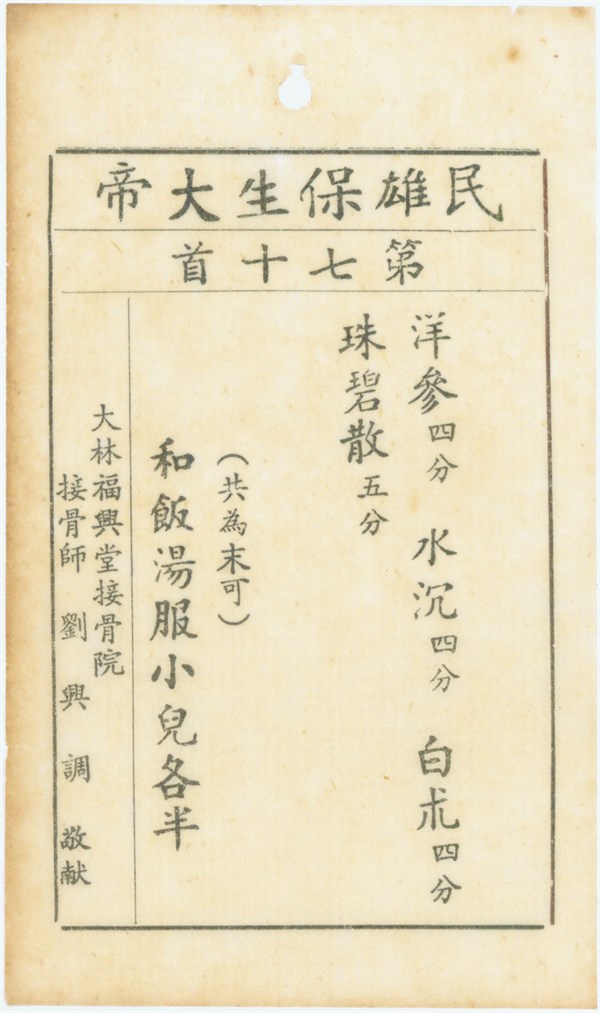 民雄保生大帝
第七十首
洋參四分　水沉四分　白朮四分
珠碧散五分
（共為末可）
和飯湯服小兒各半
大林福興堂接骨院
接骨師　劉興調　敬献